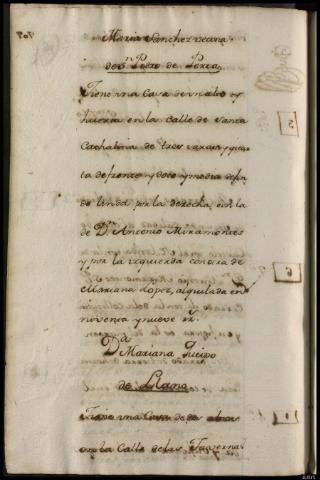 707
Maria Sanchez vecina
de Sn. Pedro de
Tiene una Casa de un alto y
huerta en la Calle de Santa
Cathalina de tres varas y quar
ta de frente y doze y media de fon
do linda por la derecha con la
5
de Dn. Antonio Miramontes
y por la izquierda con otra de
6
Mariana Lopez, alquilada en
noventa y nueve rs.
Da
Mariana
de Llano
Tiene una Casa de
en la Calle de las Tavernas